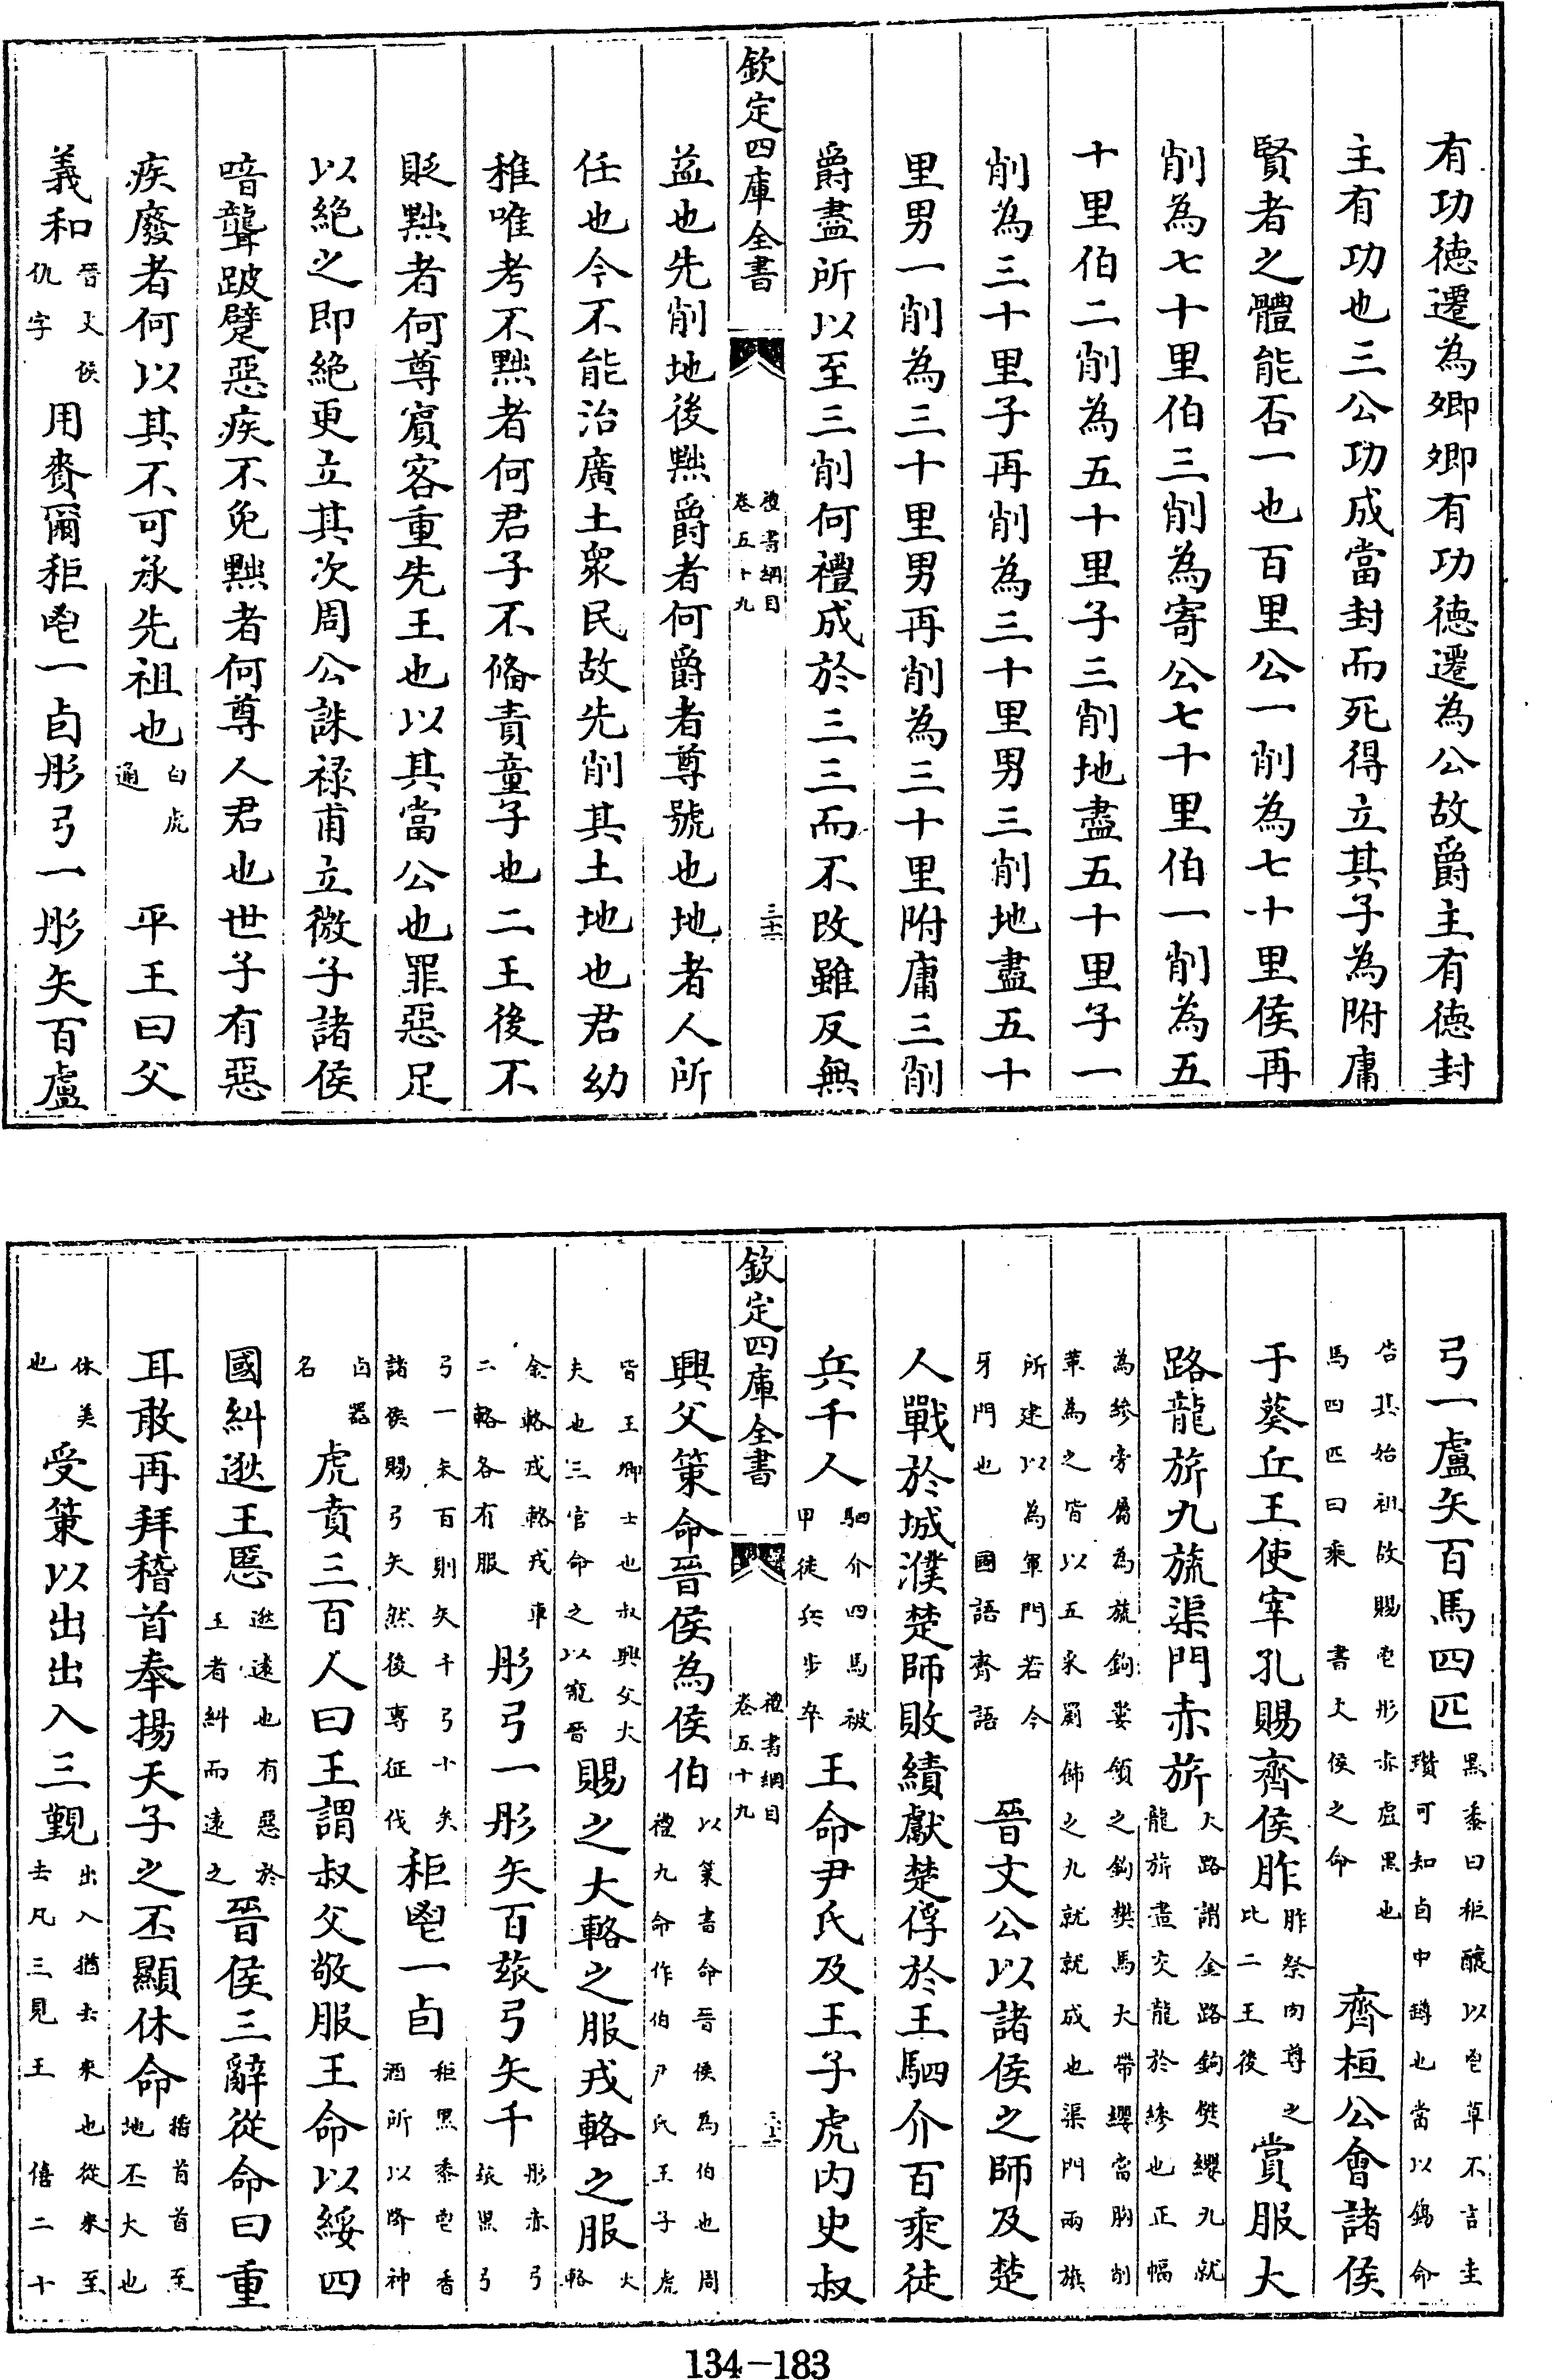 有功德遷為卿卿有功德遷為公故爵主有德封
主有功也三公功成當封而死得立其子為附庸
賢者之體能否一也百里公一削為七十里侯再
削為七十里伯三削為寄公七十里伯一削為五
十里伯二削為五十里子三削地盡五十里子一
削為三十里子再削為三十里男三削地盡五十
里男一削為三十里男再削為三十里附庸三削
爵盡所以至三削何禮成於三三而不改雖反無
欽定四庫全書 禮書綱目 卷五十九
益也先削地後黜爵者何爵者尊號也地者人所
任也今不能治廣土衆民故先削其土地也君幼
稚唯考不黜者何君子不脩責童子也二王後不
貶黜者何尊賓客重先王也以其當公也罪惡足
以絶之即絶更立其次周公誅禄甫立微子諸侯
喑聾跛躄惡疾不免黜者何尊人君也世子有惡
疾廢者何以其不可承先祖也 白虎通 平王曰父
義和 晉文侯仇字 用賚爾秬鬯一卣彤弓一彤矢百盧
弓一盧矢百馬四匹 黑黍曰秬釀以鬯草不言圭瓚可知卣中罇也當以錫命
告其始祖故賜鬯彤赤盧黑也馬四匹曰乘 書文侯之命 齊桓公會諸侯
于葵丘王使宰孔賜齊侯胙 胙祭肉尊之比二王後 賞服大
路龍旂九旒渠門赤旂 大路謂金路鉤樊纓九就龍旂畫交龍於縿也正幅
為縿旁屬為旒鉤婁頷之鉤樊馬大帶纓當胸削革為之皆以五采罽飾之九就就成也渠門兩旗
所建以為軍門若今牙門也 國語齊語 晉文公以諸侯之師及楚
人戰於城濮楚師敗績獻楚俘於王駟介百乘徒
兵千人 駟介四馬被甲徒兵步卒 王命尹氏及王子虎内史叔
欽定四庫全書 禮書綱目 卷五十九
興父策命晉侯為侯伯 以策書命晉侯為伯也周禮九命作伯尹氏王子虎
皆王卿士也叔興父大夫也三官命之以寵晉 賜之大輅之服戎輅之服 大輅
金輅戎輅戎車二輅各有服 彤弓一彤矢百玈弓矢千 彤赤弓玈黑弓
弓一矢百則矢千弓十矣諸侯賜弓矢然後專征伐 秬鬯一卣 秬黑黍鬯香酒所以降神
卣器名 虎賁三百人曰王謂叔父敬服王命以綏四
國糾逖王慝 逖遠也有惡於王者糾而遠之 晉侯三辭從命曰重
耳敢再拜稽首奉揚天子之丕顯休命 稽首首至地丕大也
休美也 受策以出出入三覲 出入猶去來也從來至去凡三見王 僖二十
134-183